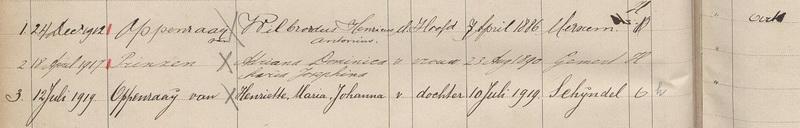 1. 24 Dec 1912 Oppenraay van X Wilbrordus Henricus Antonius. M. Hoofd 7 April 1886 K
2 18 April 1917 Prinzen X Adriana Dominica Maria Josephina v vrouw 23 Aug 1890 Gemert K
3. 12 Juli 1919 Oppenraay van X Henriette, Maria, Johanna v dochter 10 Juli 1919. Schÿndel G